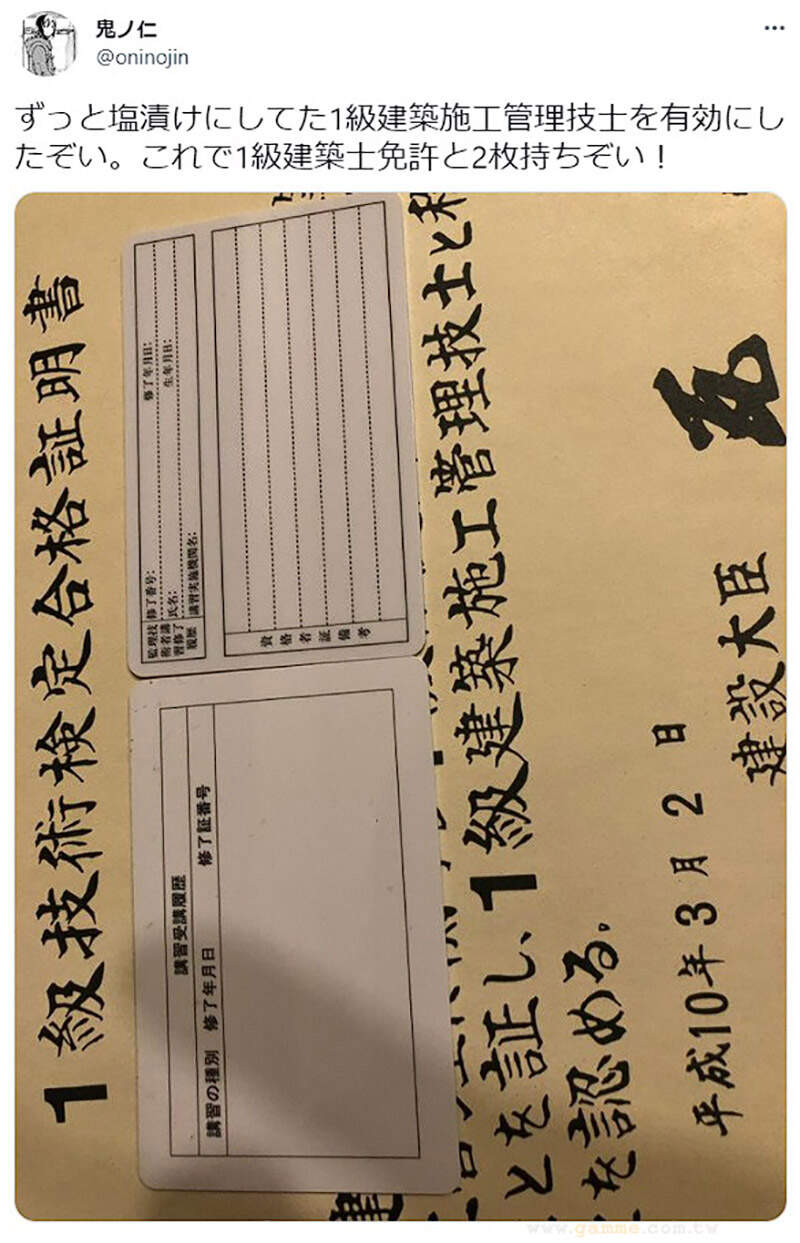 鬼ノ仁
@oninojin
ずっと塩漬けにしてた1級建築施工管理技士を有効にし
たぞい。これで1級建築士免許と2枚持ちぞい！
1級技術検定合格証明書
監理技術者講習修了履歴
修了番号:
修了年月日:
氏名:
生年月日:
講習実施機関名:
資格者証備考
講習受講履歴
講習の種別 修了年月日 修了証番号
とを証し、1級建築施工管理技士と称
を認める。
平成10年3月2日
建設大臣
www.gamme.com.tw